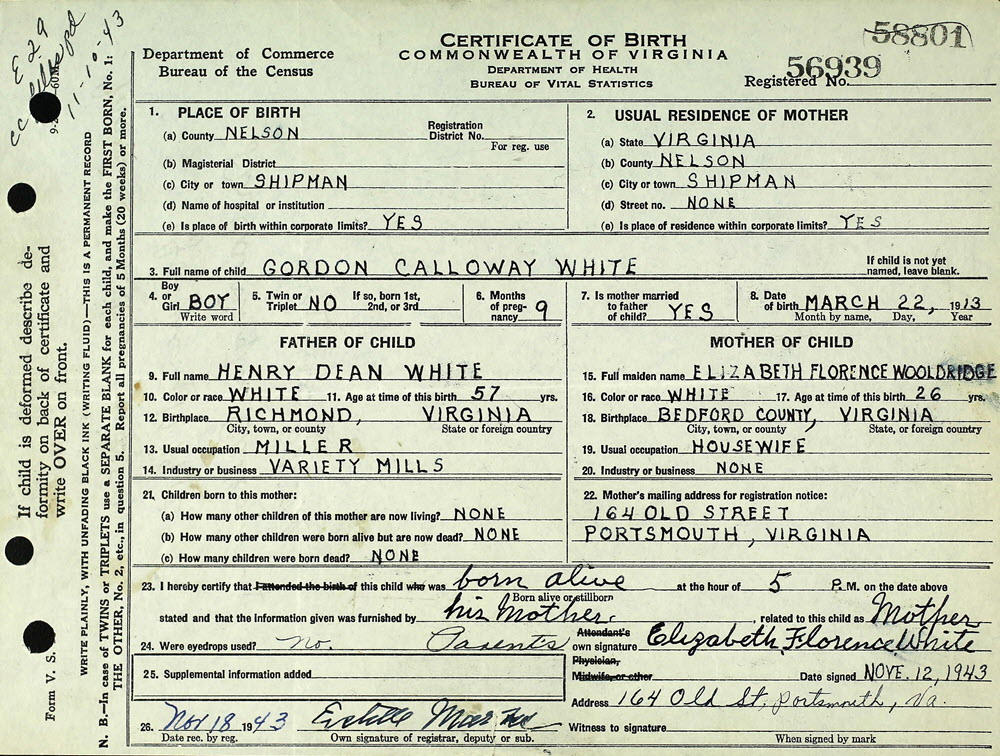 CERTIFICATE OF BIRTH
COMMONWEALTH OF VIRGINIA
DEPARTMENT OF HEALTH
BUREAU OF VITAL STATISTICS
Department of Commerce
Bureau of the Census
58801
56939
Registered No.
1. PLACE OF BIRTH
(a) County NELSON Registration District No. For reg. use
(b) Magisterial District
(c) City or town SHIPMAN
(d) Name of hospital or institution
(e) Is place of birth within corporate limits? YES
2. USUAL RESIDENCE OF MOTHER
(a) State VIRGINIA
(b) County NELSON
(c) City or town SHIPMAN
(d) Street no. NONE
(e) Is place of residence within corporate limits? YES
3. Full name of child GORDON CALLOWAY WHITE If child is not yet named, leave blank.
4. Boy or Girl BOY Write word
5. Twin or Triplet NO If so, born 1st, 2nd, or 3rd
6. Months of pregnancy 9
7. Is mother married to father of child? YES
8. Date of birth MARCH 22, 1913
Month by name, Day, Year
FATHER OF CHILD
9. Full name HENRY DEAN WHITE
10. Color or race WHITE 11. Age at time of this birth 57 yrs.
12. Birthplace RICHMOND, VIRGINIA
City, town, or county State or foreign country
13. Usual occupation MILLER
14. Industry or business VARIETY MILLS
MOTHER OF CHILD
15. Full maiden name ELIZABETH FLORENCE WOOLDRIDGE
16. Color or race WHITE 17. Age at time of this birth 26 yrs.
18. Birthplace BEDFORD COUNTY, VIRGINIA
City, town, or county State, or foreign country
19. Usual occupation HOUSEWIFE
20. Industry or business NONE
21. Children born to this mother:
(a) How many other children of this mother are now living? NONE
(b) How many other children were born alive but are now dead? NONE
(c) How many children were born dead? NONE
22. Mother's mailing address for registration notice:
164 OLD STREET
PORTSMOUTH, VIRGINIA
23. I hereby certify that I attended the birth of this child who was born alive at the hour of 5 P.M. on the date above
Born alive or stillborn
stated and that the information given was furnished by his Mother, related to this child as Mother
24. Were eyedrops used? no. Parents Attendant's own signature Elizabeth Florence White
Physician,
Midwife, or other Date signed NOVE. 12, 1943
25. Supplemental information added
Address 164 Old St, Portsmouth, Va.
26. Nov 18 1943
Date rec. by reg. Own signature of registrar, deputy or sub.
Witness to signature
When signed by mark
If child is deformed describe deformity on back of certificate and write OVER on front.
Form V. S.
WRITE PLAINLY, WITH UNFADING BLACK INK (WRITING FLUID)—THIS IS A PERMANENT RECORD
N. B.—In case of TWINS or TRIPLETS use a SEPARATE BLANK for each child, and make the FIRST BORN, No. 1:
THE OTHER, No. 2, etc., in question 5. Report all pregnancies of 5 Months (20 weeks) or more.
11-10-43